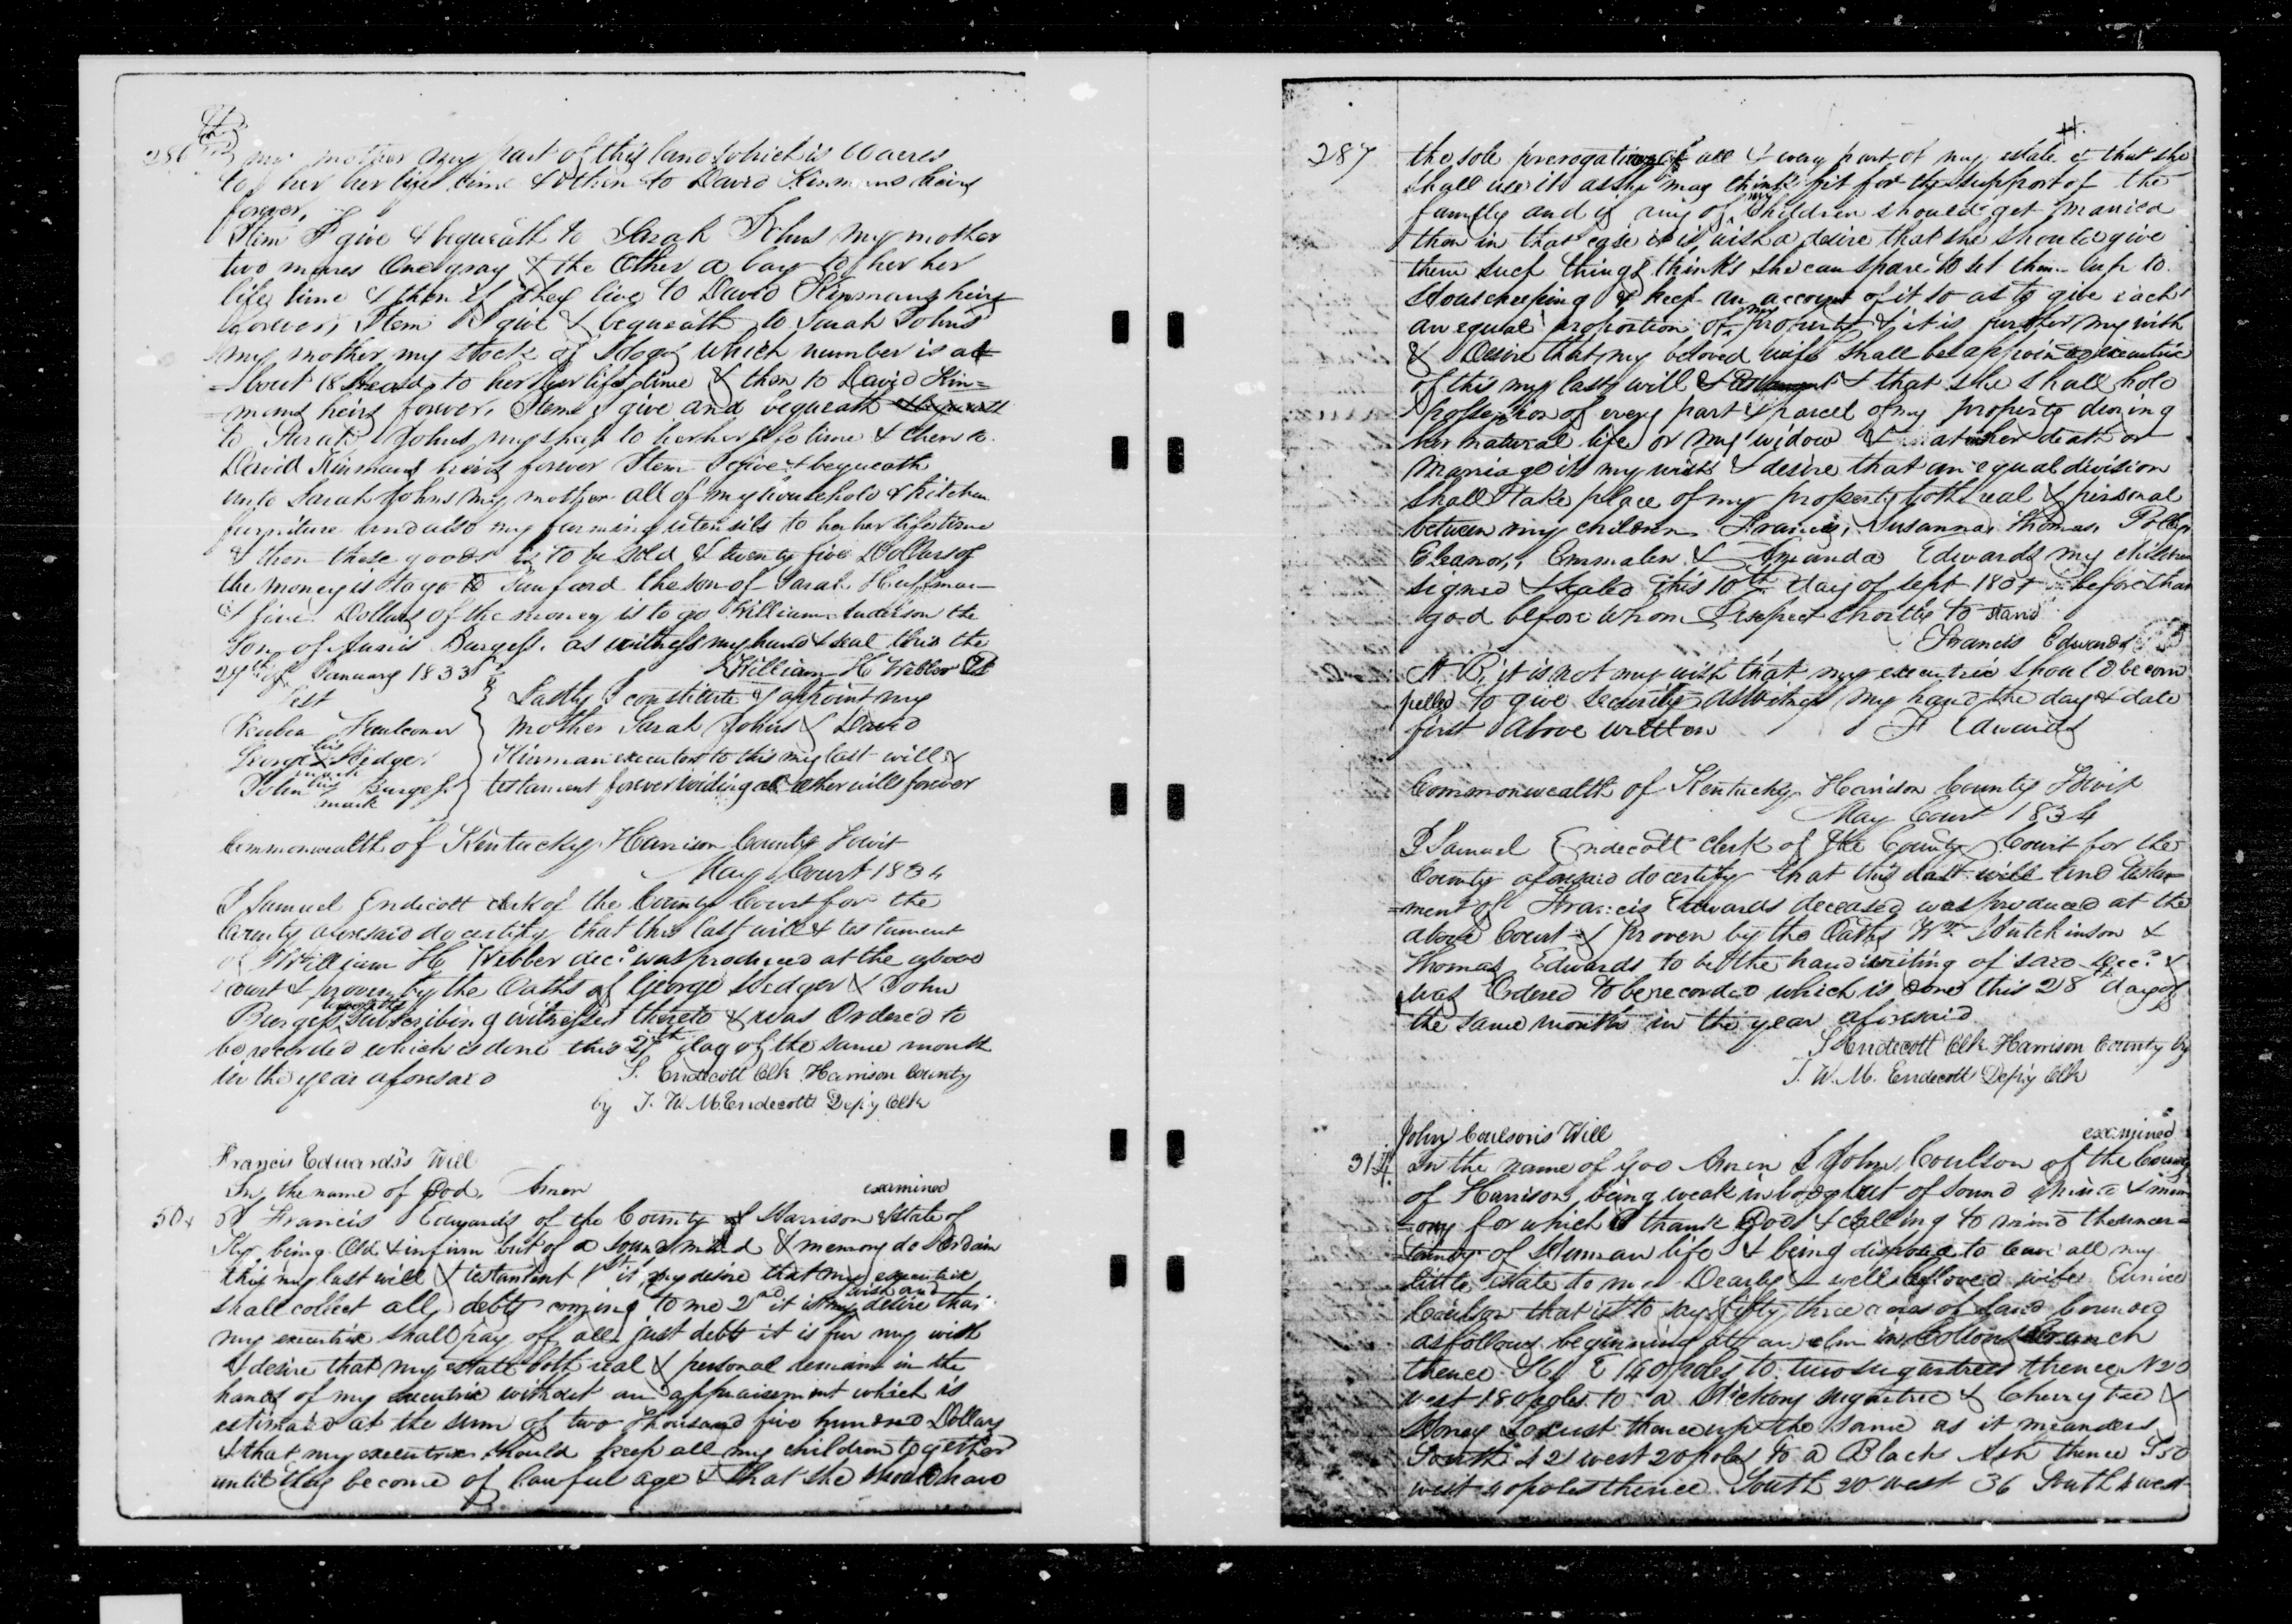 286
my mother my part of this land which is 60 acres
to her her life time & then to David Kinmans heirs
forever.
Item I give & bequeath to Sarah Johns my mother
two mares One gray & the Other a bay to her her
life time & then if they live to David Kinmans heirs
forever, Item I give & bequeath to Sarah Johns
my mother my stock of Hogs which number is at
=bout 18 Head, to her her life time & then to David Kin=
=mans heirs forever. Item I give and bequeath & bequeath
to Sarah Johns my sheep to her her life time & then to
David Kinmans heirs forever Item I give & bequeath
unto Sarah Johns my mother all of my household & kitchen
furniture and also my farming utensils to her her life time
& then these goods is to be sold & twenty five Dollars of
the money is to go to Sanford the son of Sarah Huffman
& five Dollars of the money is to go William Anderson the
Son of Burgess. as witness my hand & seal this the
29th of January 1833 William H Webber
Test Lastly I constitute & appoint my
Reuben Faulconer mother Sarah Johns & David
George his X mark Hedger Kinman executors to this my last will &
John his mark Burgess testament forever voiding all other wills forever
Commonwealth of Kentucky Harrison County Towit
May Court 1834
I Samuel Endicott clerk of the County Court for the
County aforesaid do certify that this last will & testament
of William H Webber decd was produced at the above
court & proven by the Oaths of George Hedger & John
Burgess Subscribing witnesses thereto & was Ordered to
be recorded which is done this 27th day of the same month
in the year aforesaid S. Endecott Clk Harrison County
by J. W. M. Endecott Depy Clk
Francis Edwards's Will
In the name of God, Amen examined
I Francis Edwards of the County of Harrison & State of
Ky. being Old & infirm but of a sound mind & memory do Ordain
this my last will & testament 1st it my desire that my executrix
shall collect all debts coming to me 2nd it is my wish and desire that
my executrix shall pay off all just debts it is fur my wish
& desire that my estate both real & personal remain in the
hands of my executrix without an appraisement which is
estimated at the sum of two thousand five hundred Dollars
& that my executrix should keep all my children together
until they become of lawful age & that she should have
287
the sole prerogative of all & every part of my estate & that she
shall use it as she may think fit for the support of the
family and if any of my children should get married
then in that case it is wish & desire that she should give
them such things thinks she can spare to set them up to
Housekeeping & keep an account of it so as to give each
an equal proportion of my property & it is further my wish
& Desire that my beloved wife shall be appointed executrix
of this my last will & testament & that she shall hold
possession of every part & parcel of my property during
her natural life or my widow & at her death or
marriage it is my wish & desire that an equal division
shall take place of my property both real & personal
between my children Francis, Susanna, Thomas, Polly,
Eleanor, Emmalen & Amanda Edwards my children
signed & sealed this 10th day of Sept before that
god before whom I expect shortly to stand
Francis Edwards
N. B. it is not my wish that my executrix should be com
pelled to give security as witness my hand the day & date
first above written F Edwards
Commonwealth of Kentucky Harrison County Towit
May Court 1834
I Samuel Endecott clerk of the County Court for the
County aforesaid do certify that this last will and testa=
=ment of Francis Edwards deceased was produced at the
above Court & proven by the Oaths Wm Hutchinson &
Thomas Edwards to be the handwriting of said decd &
was Ordered to be recorded which is done this 28th day of
the same month in the year aforesaid
S Endecott Clk Harrison County by
J. W. M. Endecott Depy Clk
John Coulson's Will examined
314 In the name of God Amen I John Coulson of the County
of Harrison, being weak in body but of sound mind & mem
=ory for which I thank God & calling to mind the uncer=
tainty of Human life & being disposed to leave all my
little estate to my Dearly & well beloved wife Eunice
Coulson that is to say fifty three acres of land bounded
as follows beginning at an elm in Colsons Branch
thence E 140 poles to two sugartrees thence N 20
west 180 poles to a Hickory sugartree & Cherry tree &
Honey Locust thence up the same as it meanders
South 42 west 20 poles to a Black Ash thence S 50
west 40 poles thence South 20 west 36 South 4 west